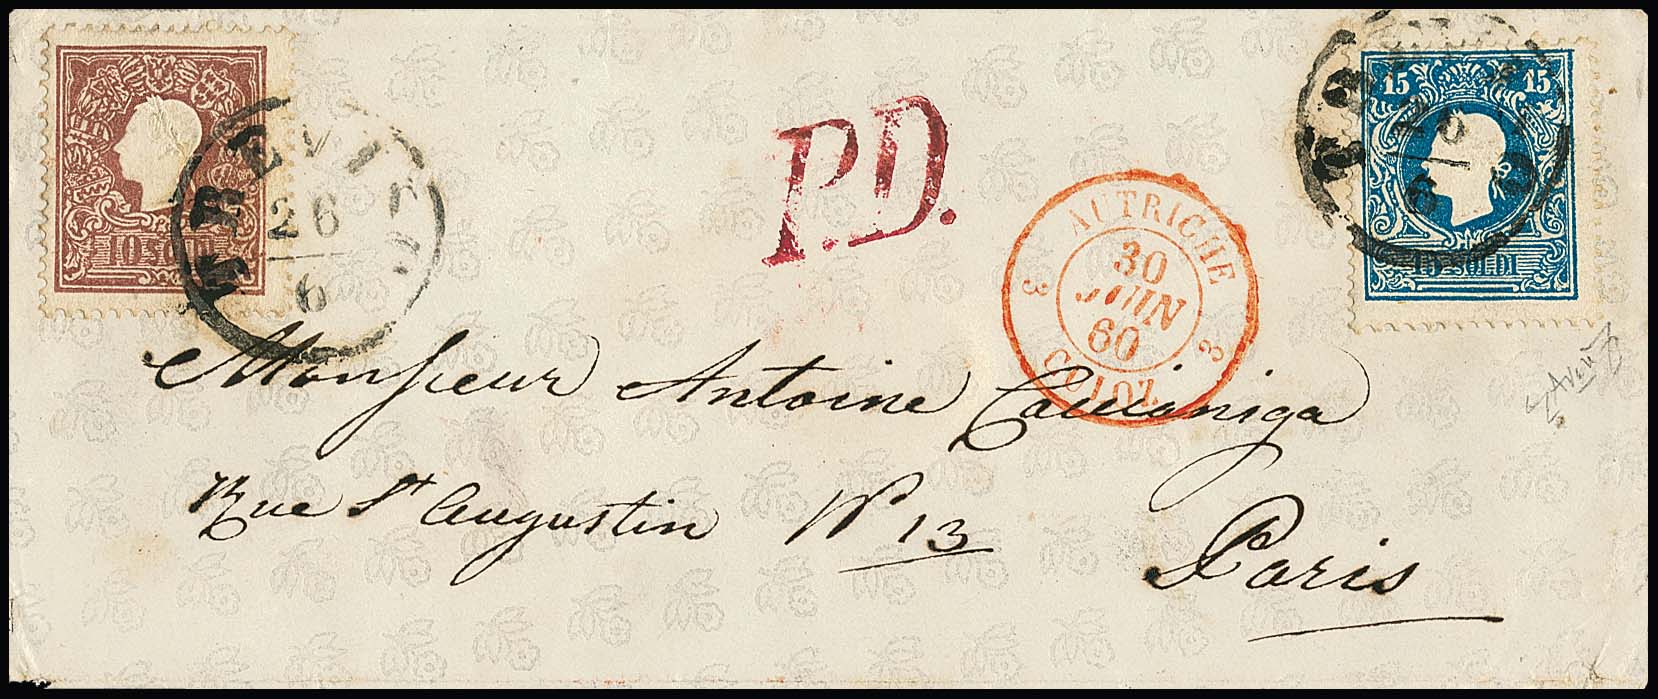 10 SOLDI
TREVISO
26
6
P.D.
AUTRICHE
30
JUIN
60
3 3
CULOZ
TREVISO
26
6
15 15
15 SOLDI
Monsieur Antoine
Rue St Augustin No 13
Paris